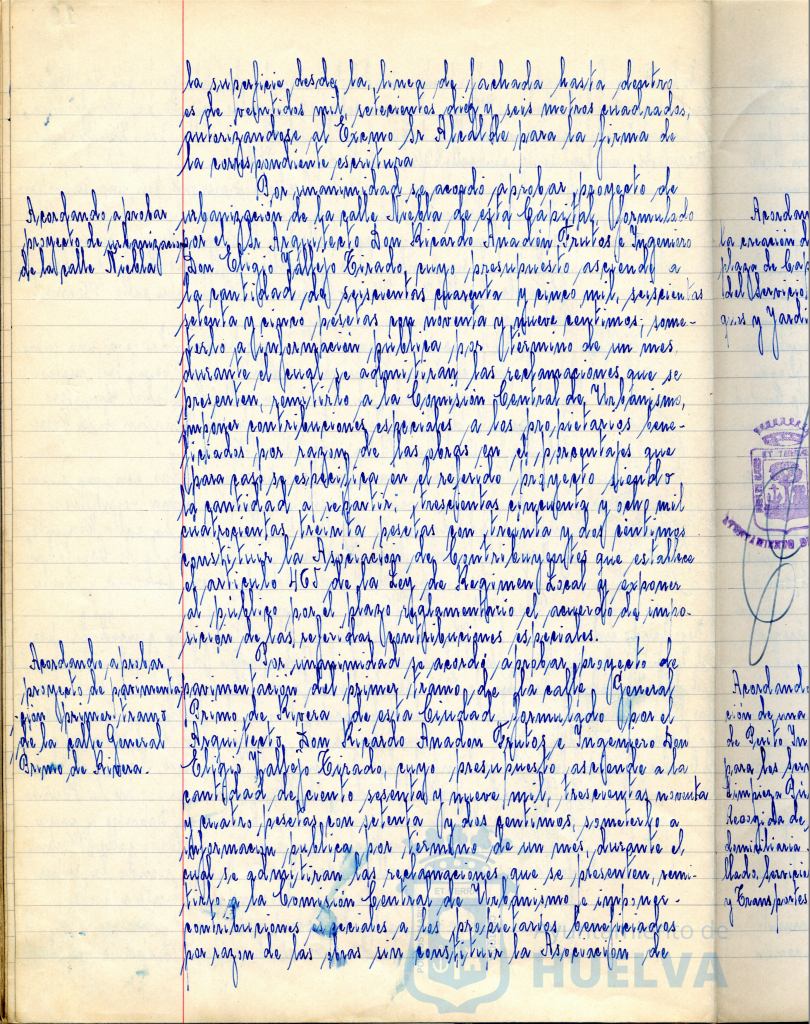 la superficie desde la linea de fachada hasta dentro
es de veintidos mil, setecientos diez y seis metros cuadrados,
autorizandose al Excmo Sr Alcalde para la firma de
la correspondiente escritura
Acordando aprobar
proyecto de urbanizacion
de la calle Niebla
Por unanimidad se acordó aprobar proyecto de
urbanizacion de la calle Niebla de esta Capital, formulado
por el Sr Arquitecto Don Ricardo Anadón Frutos e Ingeniero
Don Eligio Vallejo Tirado, cuyo presupuesto asciende a
la cantidad de seiscientas cuarenta y cinco mil, seiscientas
setenta y cinco pesetas con noventa y nueve centimos; some-
terlo a informacion publica por termino de un mes
durante el cual se admitiran las reclamaciones que se
presenten, remitirlo a la Comisión Central de Urbanismo,
imponer contribuciones especiales a los propietarios bene-
ficiados por razon de las obras en el porcentajes que
para caso se especifica en el referido proyecto siendo
la cantidad a repartir; trescientas cincuenta y ocho mil
cuatrocientas treinta pesetas con treinta y dos centimos
constituir la Asociacion de Contribuyentes que establece
el articulo 465 de la Ley de Regimen Local y exponer
al público por el plazo reglamentario el acuerdo de impo-
sicion de las referidas contribuciones especiales.
Acordando aprobar
proyecto de pavimenta-
cion primer tramo
de la calle General
Primo de Rivera.
Por unanimidad se acordó aprobar proyecto de
pavimentacion del primer tramo de la calle General
Primo de Rivera de esta Ciudad formulado por el
Arquitecto Don Ricardo Anadon Frutos e Ingeniero Don
Eligio Vallejo Tirado, cuyo presupuesto asciende a la
cantidad de ciento sesenta y nueve mil, trescientas noventa
y cuatro pesetas con setenta y dos centimos, someterlo a
informacion publica por termino de un mes, durante el
cual se admitiran las reclamaciones que se presenten, remi-
tirlo a la Comisión Central de Urbanismo e imponer
contribuciones especiales a los propietarios beneficiados
por razon de las obras sin constituir la Asociacion de
Ayuntamiento de
HUELVA
Acordan
la creacion d
plaza de Cap
del Servicio
ques y Jardi
Acordando
cion de una
de Perito In
para los Ser
Limpieza Pú
Recogida de
domiciliaria
llado, Servicio
y Transportes